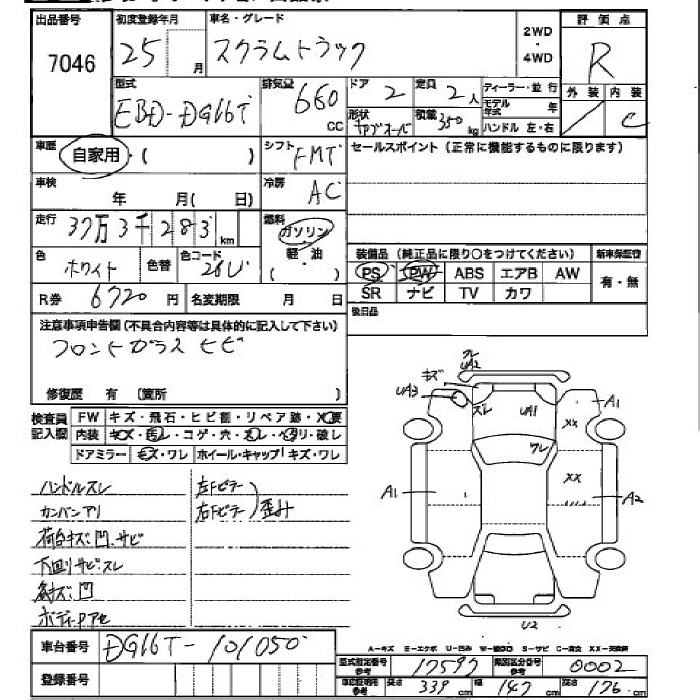 出品番号 初度登録年月 車名・グレード 評価点
7046 25 月 スクラムトラック 2WD・4WD R
型式 排気量 ドア 定員 ディーラー・並行 外装 内装
EBD-DG16T 660 CC 2 2人 モデル年式 年 / C
形状 キャブオーバ 積載 350kg ハンドル 左・右
車歴 自家用・( ) シフト FMT セールスポイント(正常に機能するものに限ります)
車検 年 月( 日) 冷房 AC
走行 37万3千283km 燃料 ガソリン・軽・油 ( )
装備品(純正品に限り○をつけてください) 新車保証書
色 ホワイト 色替 色コード 26U PS PW ABS エアB AW 有・無
R券 6720円 名変期限 月 日 SR ナビ TV カワ
後日品
注意事項申告欄(不具合内容等は具体的に記入して下さい)
フロントガラスヒビ
修復歴 有 [箇所 ]
検査員記入欄 FW キズ・飛石・ヒビ割・リペア跡・X要
内装 キズ・汚レ・コゲ・穴・スレ・ヘタリ・破レ
ドアミラー キズ・ワレ ホイール・キャップ キズ・ワレ
キズ UA3 クレ UA2 スレ UA1 ワレ A1 XX
A1 XX A2
U2
ハンドルスレ 左Fピラー
カンバンアリ 右Fピラー 歪み
荷台キズ凹サビ
下回リサビ・スレ
キズ凹
ボディヤアセ
A-キズ E-エクボ U-凹み W-補修跡 S-サビ C-腐食 XX-交換済
車台番号 DG16T-101050
型式指定番号 参考 17597 類別区分番号 参考 0002
登録番号 車検証明用 参考 長さ 339cm 幅 147cm 高さ 176cm